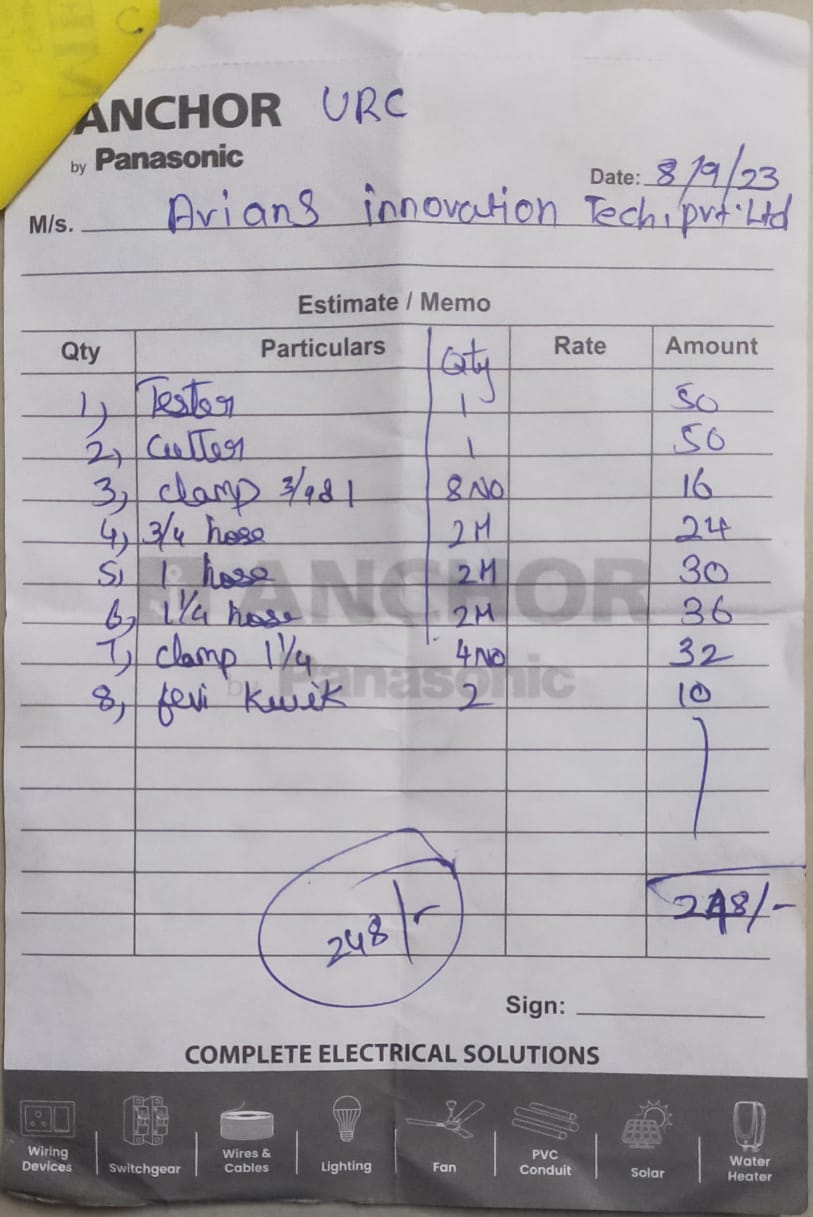 ANCHOR URC
by Panasonic
Date: 8/9/23
M/s. Arians innovation Tech, pvt. Ltd
Estimate / Memo
Qty Particulars Qty Rate Amount
1, Tester 1 50
2, Cutter 1 50
3, clamp 3/4 & 1 8 NO 16
4, 3/4 hose 2M 24
5, 1 hose 2M 30
6, 1 1/4 hose 2M 36
7, clamp 1 1/4 4 NO 32
8, fevi kwik 2 10
ANCHOR
by Panasonic
248/-
248/-
Sign:
COMPLETE ELECTRICAL SOLUTIONS
Wiring Devices
Switchgear
Wires & Cables
Lighting
Fan
PVC Conduit
Solar
Water Heater